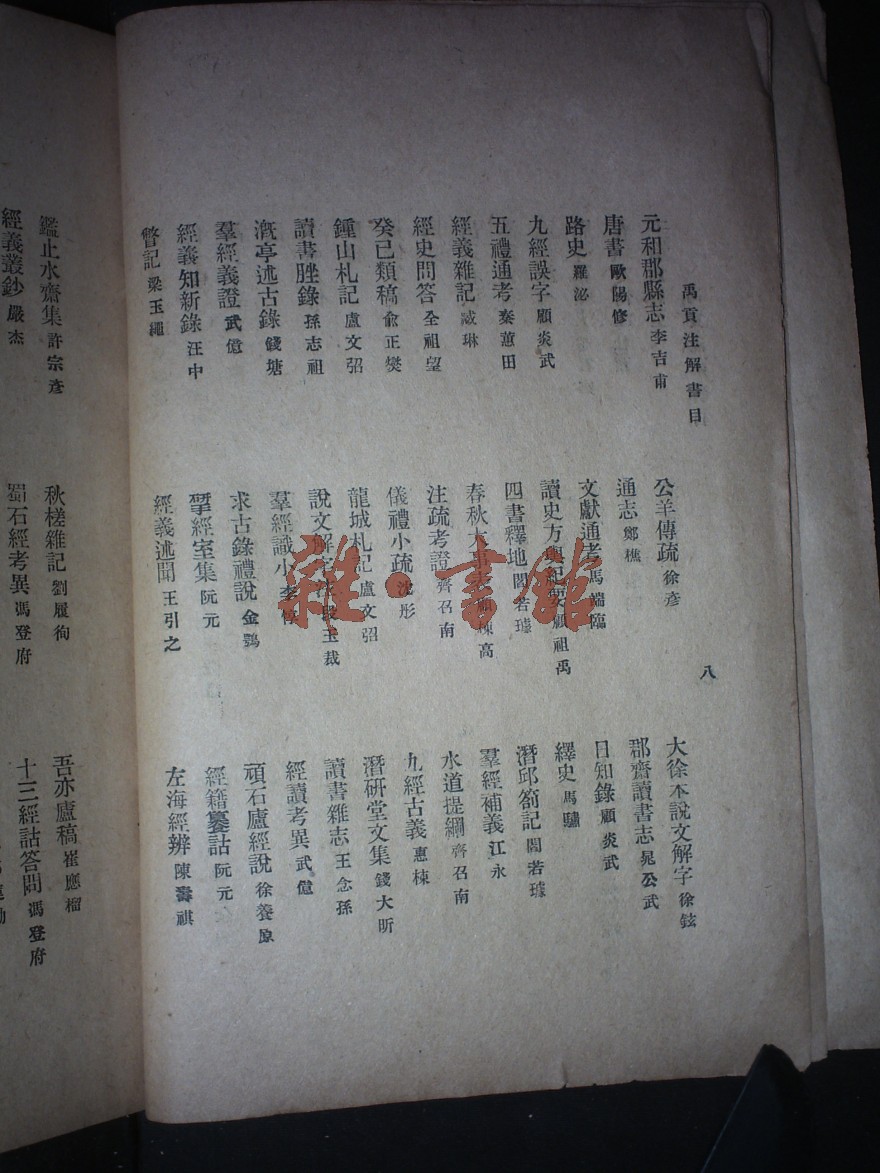 禹貢注解書目 八
元和郡縣志 李吉甫 公羊傳疏 徐彦 大徐本說文解字 徐鉉
唐書 歐陽修 通志 鄭樵 郡齋讀書志 晁公武
路史 羅泌 文獻通考 馬端臨 日知錄 顧炎武
九經誤字 顧炎武 讀史方輿紀要 顧祖禹 繹史 馬驌
五禮通考 秦蕙田 四書釋地 閻若璩 潛邱劄記 閻若璩
經義雜記 臧琳 春秋大事表 顧棟高 羣經補義 江永
經史問答 全祖望 注疏考證 齊召南 水道提綱 齊召南
癸巳類稿 俞正燮 儀禮小疏 沈彤 九經古義 惠棟
鍾山札記 盧文弨 龍城札記 盧文弨 潛研堂文集 錢大昕
讀書脞錄 孫志祖 說文解字注 段玉裁 讀書雜志 王念孫
漑亭述古錄 錢塘 羣經識小 李惇 經讀考異 武億
羣經義證 武億 求古錄禮說 金鶚 頑石廬經說 徐養原
經義知新錄 汪中 揅經室集 阮元 經籍籑詁 阮元
瞥記 梁玉繩 經義述聞 王引之 左海經辨 陳壽祺
鑑止水齋集 許宗彥 秋槎雜記 劉履恂 吾亦廬稿 崔應榴
經義叢鈔 嚴杰 蜀石經考異 馮登府 十三經詁答問 馮登府
雜·書館